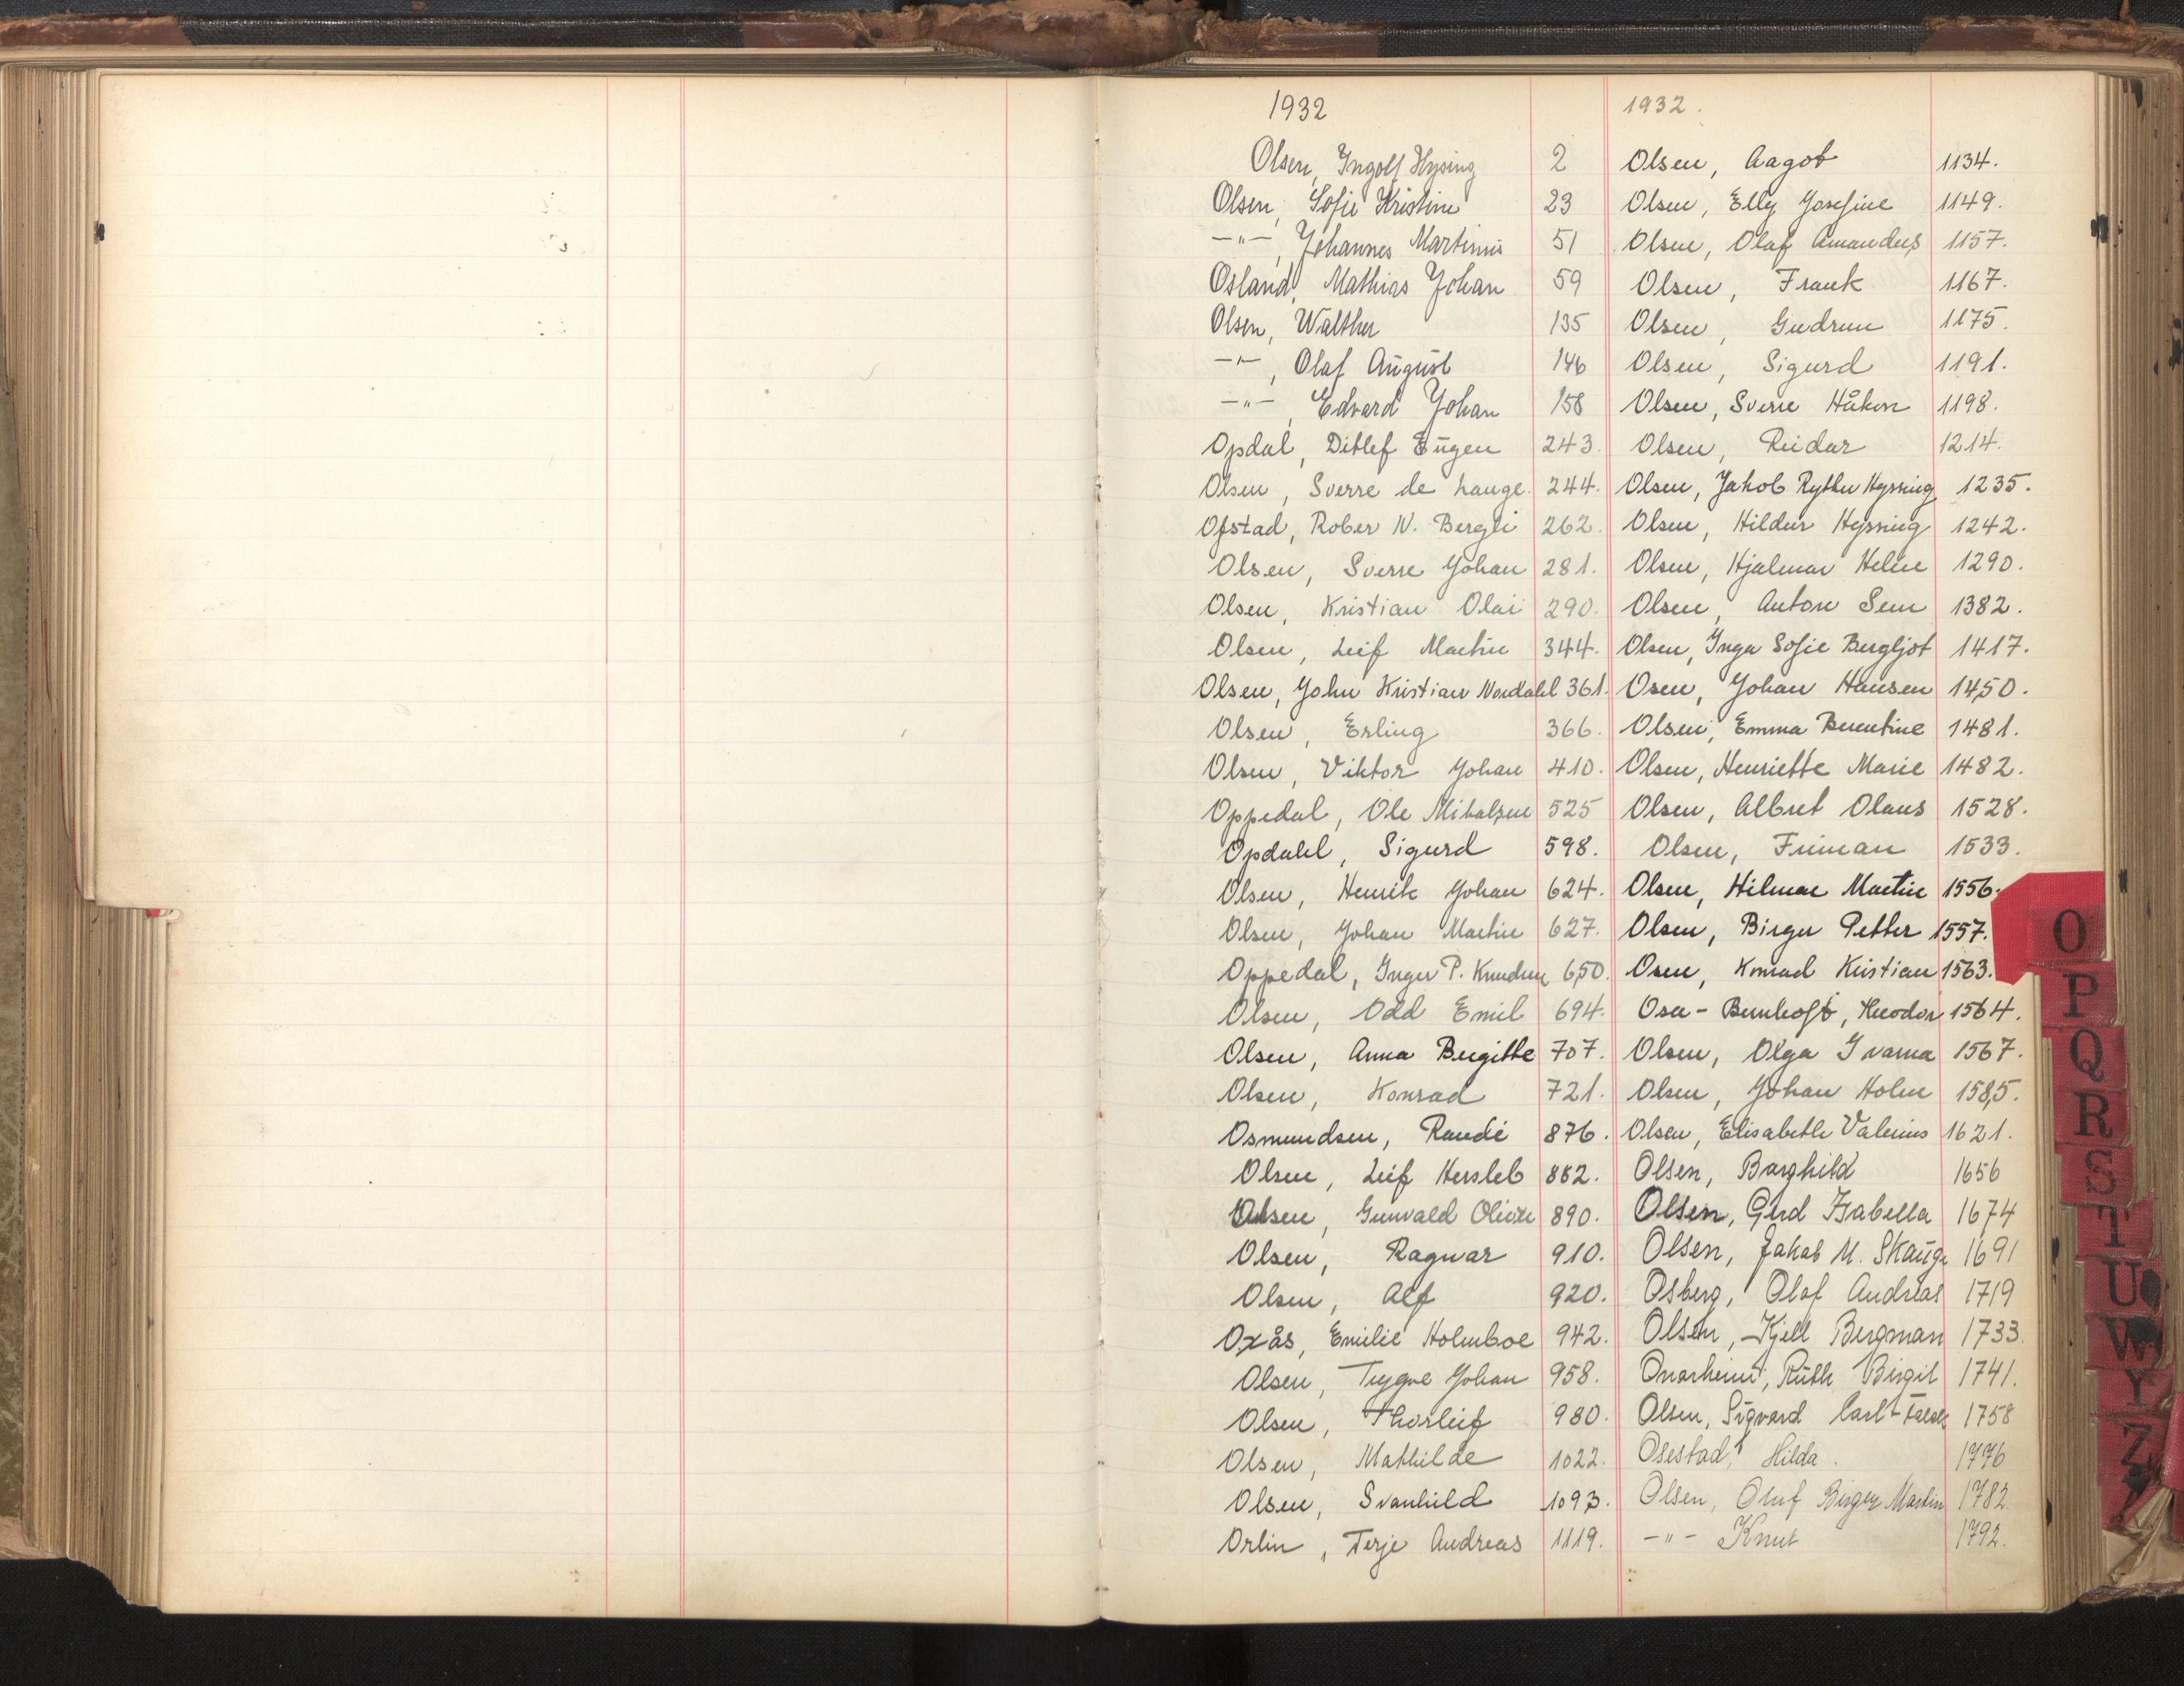 1932
Olsen, Ingolf Hysing 2
Olsen, Sofie Kristine 23
-"-, Johannes Martinus 51
Osland, Mathias Johan 59
Olsen, Walther 135
-"-, Olaf August 146
-"-, Edvard Johan 158
Opdal, Ditlef Eugen 243.
Olsen, Sverre de hauge. 244.
Ofstad, Rober N. Bergli 262.
Olsen, Sverre Johan 281.
Olsen, Kristian Olai 290.
Olsen, Leif Martin 344.
Olsen, John Kristian Nordahl 361.
Olsen, Erling 366.
Olsen, Viktor Johan 410.
Oppedal, Ole Mikalsen 525
Opdahl, Sigurd 598.
Olsen, Henrik Johan 624.
Olsen, Johan Martin 627.
Oppedal, Inger P. Knudsen 650.
Olsen, Odd Emil 694.
Olsen, Anna Birgitte 707.
Olsen, Konrad 721.
Osmundsen, Randi 876.
Olsen, Leif Hersleb 882.
Olsen, Gunvald Oliver 890.
Olsen, Ragnar 910.
Olsen, Alf 920.
Oxås, Emilie Holmboe 942.
Olsen, Trygve Johan 958.
Olsen, Thorleif 980.
Olsen, Mathilde 1022.
Olsen, Svanhild 1093.
Orlin, Terje Andreas 1119.
1932.
Olsen, Aagot 1134.
Olsen, Elly Josefine 1149.
Olsen, Olaf Amandus 1157.
Olsen, Frank 1167.
Olsen, Gudrun 1175.
Olsen, Sigurd 1191.
Olsen, Sverre Håkon 1198.
Olsen, Reidar 1214.
Olsen, Jakob Ryther Hyssing 1235.
Olsen, Hildur Hyssing 1242.
Olsen, Hjalmar Helse 1290.
Olsen, Anton Sem 1382.
Olsen, Inga Sofie Bergljot 1417.
Osen, Johan Hansen 1450.
Olsen, Emma Berentine 1481.
Olsen, Henriette Marie 1482.
Olsen, Albret Olaus 1528.
Olsen, Friman 1533.
Olsen, Hilmar Martin 1556.
Olsen, Birger Petter 1557.
Osen, Konrad Kristian 1563.
Osen-Bernhoft, Theodor 1564.
Olsen, Olga Ivarna 1567.
Olsen, Johan Holm 1585.
Olsen, Elisabeth Valerius 1621.
Olsen, Borghild 1656
Olsen, Gerd Isabella 1674
Olsen, Jakob M. Skauge 1691
Osberg, Olaf Andreas 1719
Olsen, Kjell Bergman 1733.
Onarheim, Ruth Birgit 1741.
Olsen, Sigvard Carl 1758
Osestad, Hilda. 1776
Olsen, Oluf Birger Martin 1782.
-"- Knut 1792.
O
P
Q
R
S
T
U
W
Y
Z